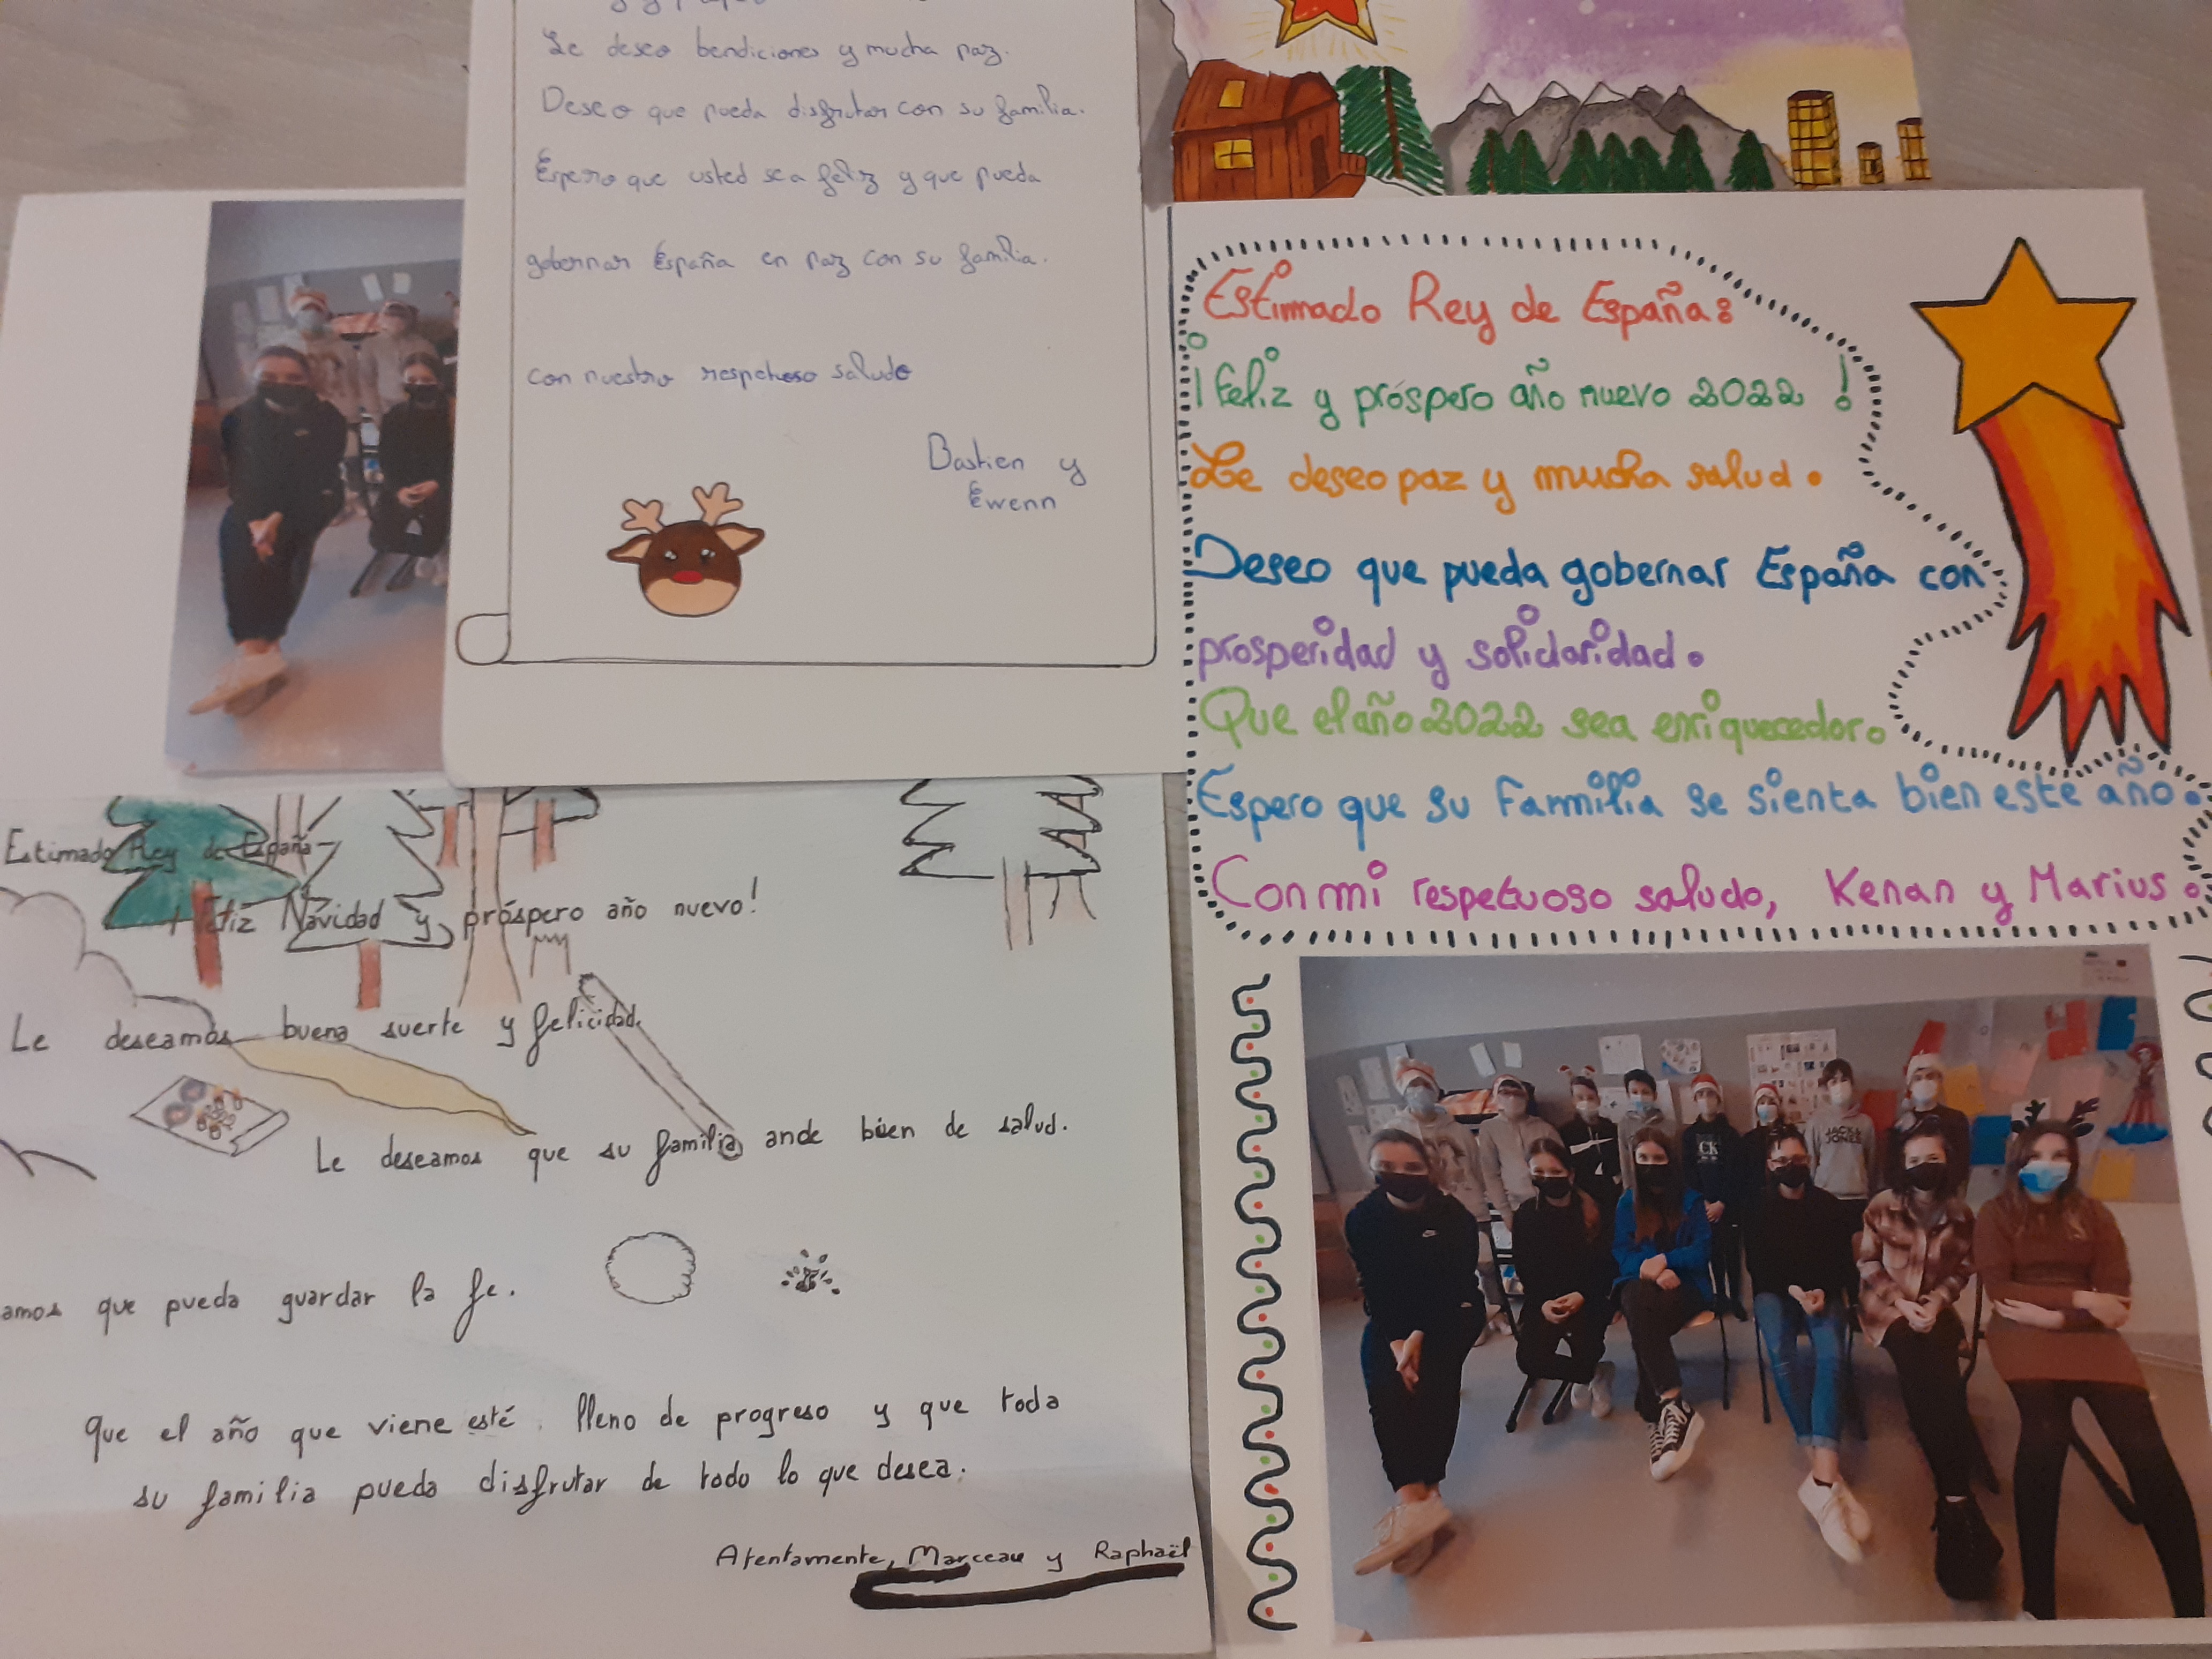 Le deseo bendiciones y mucha paz.
Deseo que pueda disfrutar con su familia.
Espero que usted sea feliz y que pueda
gobernar España en paz con su familia.
con nuestro respetuoso saludo
Bastien y
Ewenn
Estimado Rey de España:
¡Feliz y próspero año nuevo 2022!
Le deseo paz y mucha salud.
Deseo que pueda gobernar España con
prosperidad y solidaridad.
Que el año 2022 sea enriquecedor.
Espero que su Familia se sienta bien este año.
Con mi respetuoso saludo, Kenan y Marius.
JACK &
JONES
CK
Estimado Rey de España
¡Feliz Navidad y próspero año nuevo!
Le deseamos buena suerte y felicidad.
Le deseamos que su familia ande bien de salud.
amos que pueda guardar la fe.
Que el año que viene esté lleno de progreso y que toda
su familia pueda disfrutar de todo lo que desea.
Atentamente, Marceau y Raphaël